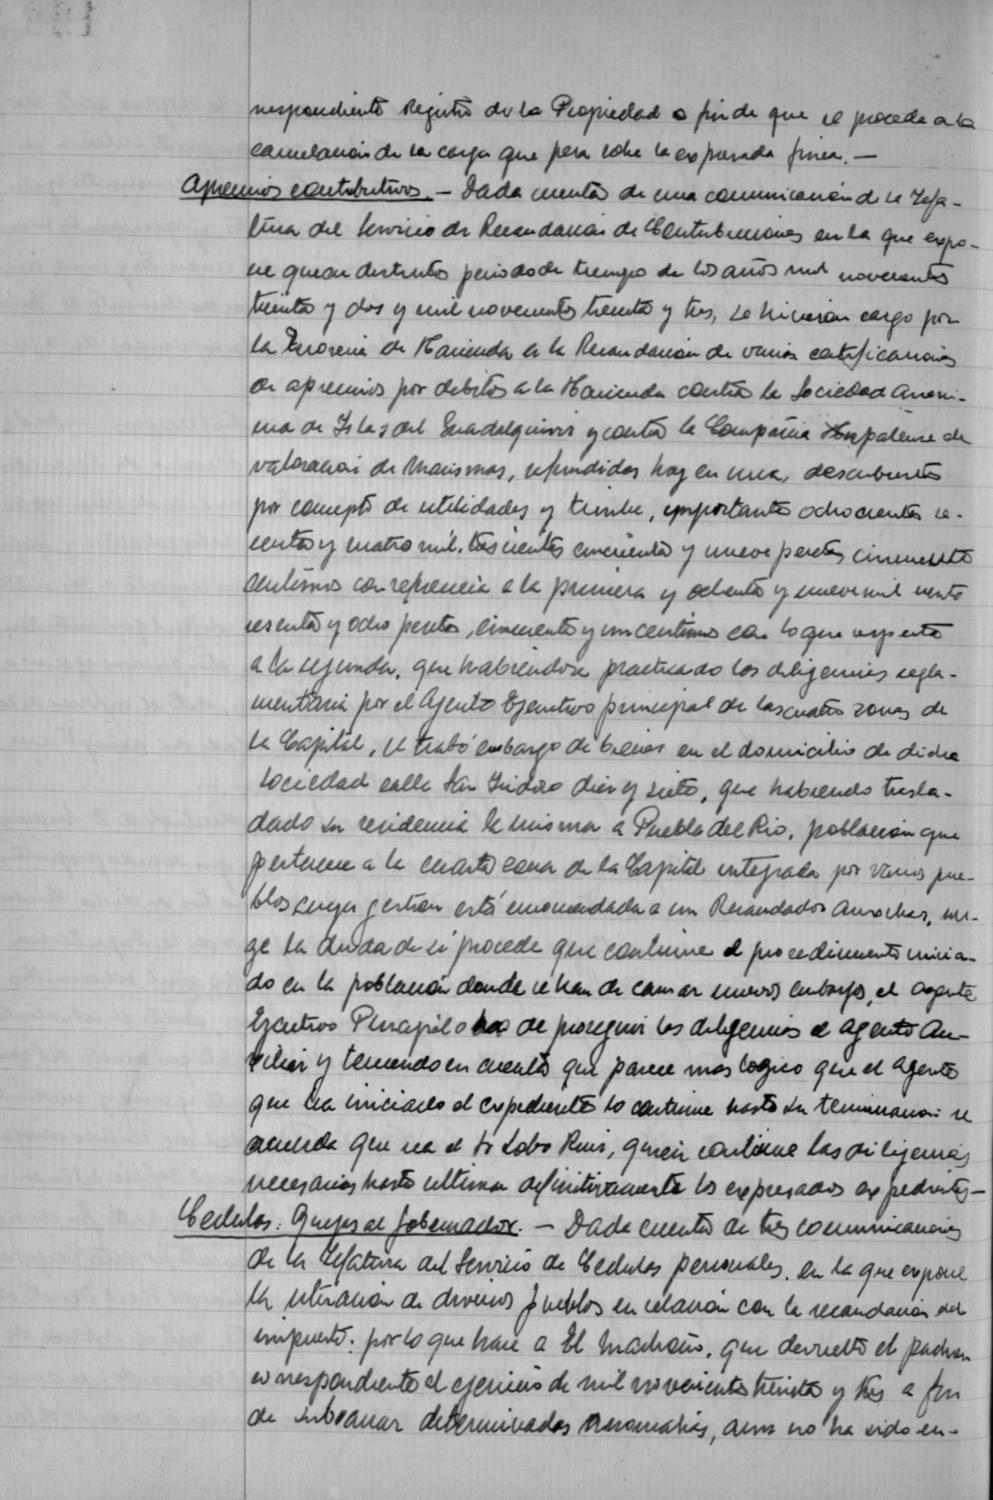 respondiente Registro de la Propiedad a fin de que se proceda a la
cancelación de la carga que pesa sobre la expresada finca. —
Apremios contributivos. — Dada cuenta de una comunicación de la Jefa-
tura del Servicio de Recaudación de Contribuciones en la que expo-
ne que en distintos periodos de tiempo de los años mil novecientos
treinta y dos y mil novecientos treinta y tres, se hicieron cargo por
la Tesoreria de Hacienda a la Recaudación de varias certificaciones
de apremios por debitos a la Hacienda contra la Sociedad Anoni-
ma de Islas del Guadalquivir y contra la Compañia Hispalense de
valoracion de Marismas, refundidas hoy en una, descubiertos
por concepto de utilidades y timbre, importantes ochocientas se-
senta y cuatro mil trescientas cincuenta y nueve pesetas cincuenta
centimos con referencia a la primera y ochenta y nueve mil ciento
sesenta y ocho pesetas, cincuenta y un centimos con lo que respecta
a la segunda, que habiendose practicado las diligencias regla-
mentaria por el Agente Ejecutivo principal de las cuatro zonas de
la Capital, se trabó embargo de bienes en el domicilio de dicha
sociedad calle San Isidoro diez y siete, que habiendo trasla-
dado su residencia la misma a Puebla del Rio, población que
pertenece a la cuarta zona de la Capital integrada por varios pue-
blos cuya gestión está encomendada a un Recaudador Auxiliar, sur-
ge la duda de si procede que continue el procedimiento inicia-
do en la población donde se han de causar nuevos embargos, el agente
Ejecutivo Principal o ha de proseguir las diligencias el Agente Au-
xiliar y teniendo en cuenta que parece mas logico que el Agente
que ha iniciado el expediente lo continue hasta su terminacion se
acuerda que sea el Sr Lobo Ruiz, quien continue las diligencias
necesarias hasta ultimar definitivamente los expresados expedientes —
Cedulas: Quejas al Gobernador. — Dada cuenta de tres comunicaciones
de la Jefatura del Servicio de Cedulas personales, en la que expone
la situación de diversos pueblos en relación con la recaudación del
impuesto: por lo que hace a El Madroño, que devuelto el padron
correspondiente al ejercicio de mil novecientos treinta y tres a fin
de subsanar determinadas anomalias, aun no ha sido en-